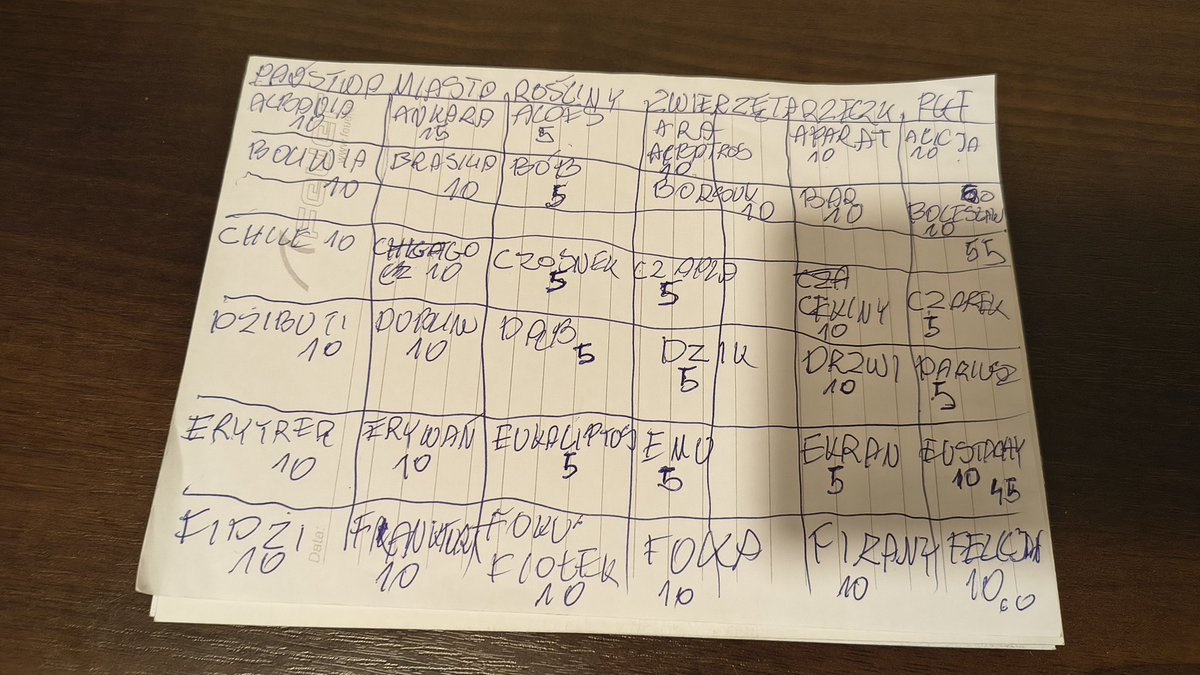 PAŃSTWA MIASTO ROŚLINY ZWIERZĘTA RZECZY
ALBANIA ANKARA ALOES ARA APARAT ALICJA
ALBATROS
10 15 5 10 10 10
BOLIWIA BRASILIA BÓB BOROWIK BAR
10 10 5 10 10 BOLESŁAW
10
55
CHILE 10 CHICAGO CZOSNEK CZAPLA CZA
CZ 10 5 5 CEKINY CZAREK
10 5
DŻIBUTI DUBLIN DĄB DZIK DRZWI DARIUSZ
10 10 5 5 10 5
ERYTREA ERYWAŃ EUKALIPTUS EMU EKRAN EUSTACHY
10 10 5 5 5 10 45
FIDZI FRANKFURT FOKA FIRANY FELICJA
FIOŁEK
10 10 10 10 10 10 60
Data: